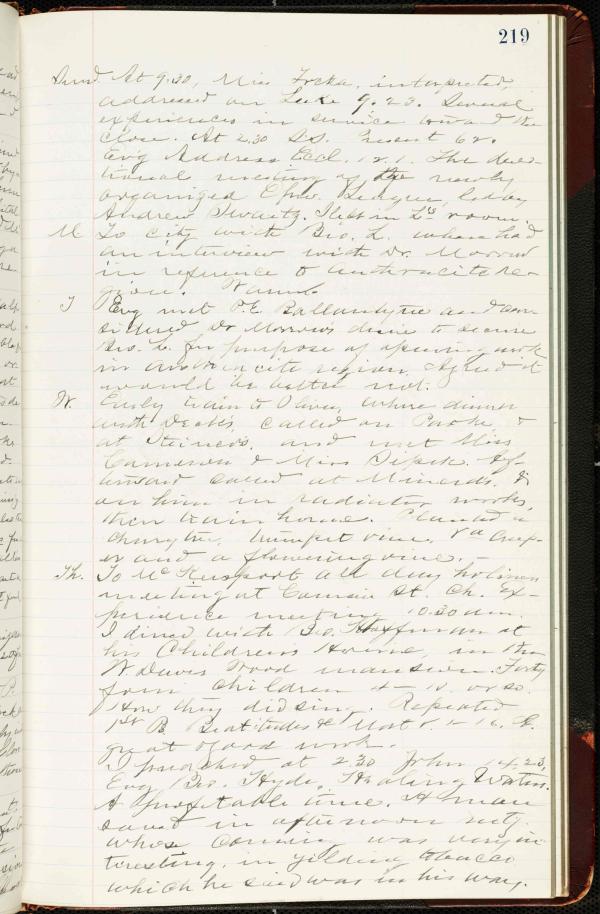 219
Sund At 9.30, Miss interpreted,
addressed on Luke 9.23. Several
experiences in service toward the
close. At 2.30 S.S. Present 62.
Ev'g Address Eccl. 12.1. The devo-
tional meeting of the newly
organized Epw. League, led by
Andrew Slept in L's room.
M To city with Bro. L. where had
an interview with Dr. Morrow
in reference to anthracite re-
gion. Warm
T Evg met P.E. Ballantyne and con-
sidered Dr Morrow's desire to secure
Bro. L. for purpose of opening work
in anthracite region. Agreed it
would be better not.
W. Early train to Oliver, where dinner
with called on &
at and met Miss
Cameron & Miss Af-
terward called at &
on him in radiator works,
then train home. Planted a
cherry tree, trumpet vine, & a creep-
er and a flowering vine.
Th. To McKeesport all day holiness
meeting at St. Ch. Ex-
perience meeting 10.30 am.
I dined with Bro. Hoffman at
his Childrens Home, in the
W. Davis Wood mansion. Forty
four children 4 - 12 or so.
How they did sing. Repeated
1st B Beatitudes & Matt
great & good work.
I preached at 2.30 John 14.23,
Evg Bro. Hyde, Healing Waters.
A profitable time. A man
saved in afternoon mtg.
whose coming was very in-
teresting, in yielding tobacco
which he said was in his way.